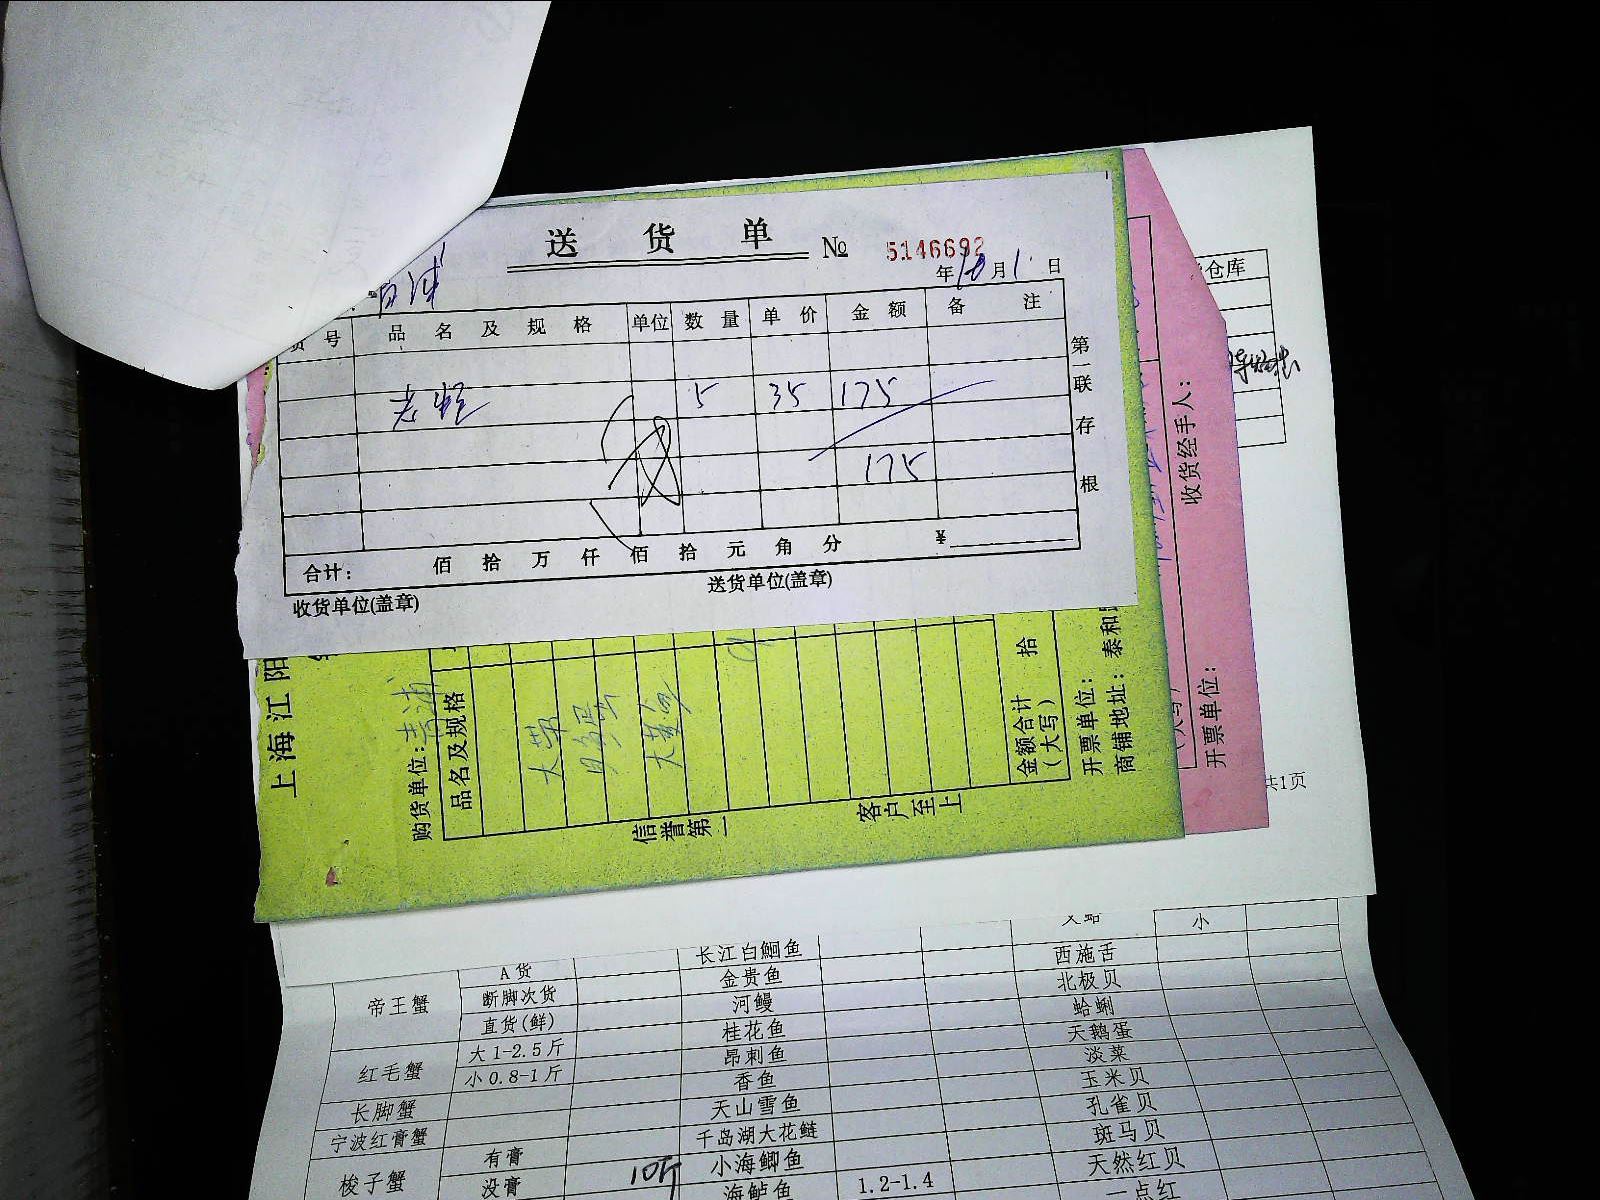 送货单 № 5146692
年10月1日
货号 品名及规格 单位 数量 单价 金额 备注
5 35 175
175
合计： 佰拾万仟佰拾元角分 ¥
收货单位(盖章) 送货单位(盖章)
第
联
存
根
上海江阳
购货单位：青浦
品名及规格
金额合计
(大写)
拾
开票单位：
商铺地址：泰和
信誉第一 客户至上
收货经手人：
开票单位：
仓库
共1页
小
A货 长江白鮰鱼 西施舌
帝王蟹 断脚次货 金贵鱼 北极贝
直货(鲜) 河鳗 蛤蜊
红毛蟹 大1-2.5斤 桂花鱼 天鹅蛋
小0.8-1斤 昂刺鱼 淡菜
长脚蟹 香鱼 玉米贝
宁波红膏蟹 天山雪鱼 孔雀贝
千岛湖大花鲢 斑马贝
梭子蟹 有膏 10斤 小海鲫鱼 天然红贝
没膏 海鲈鱼 1.2-1.4 一点红